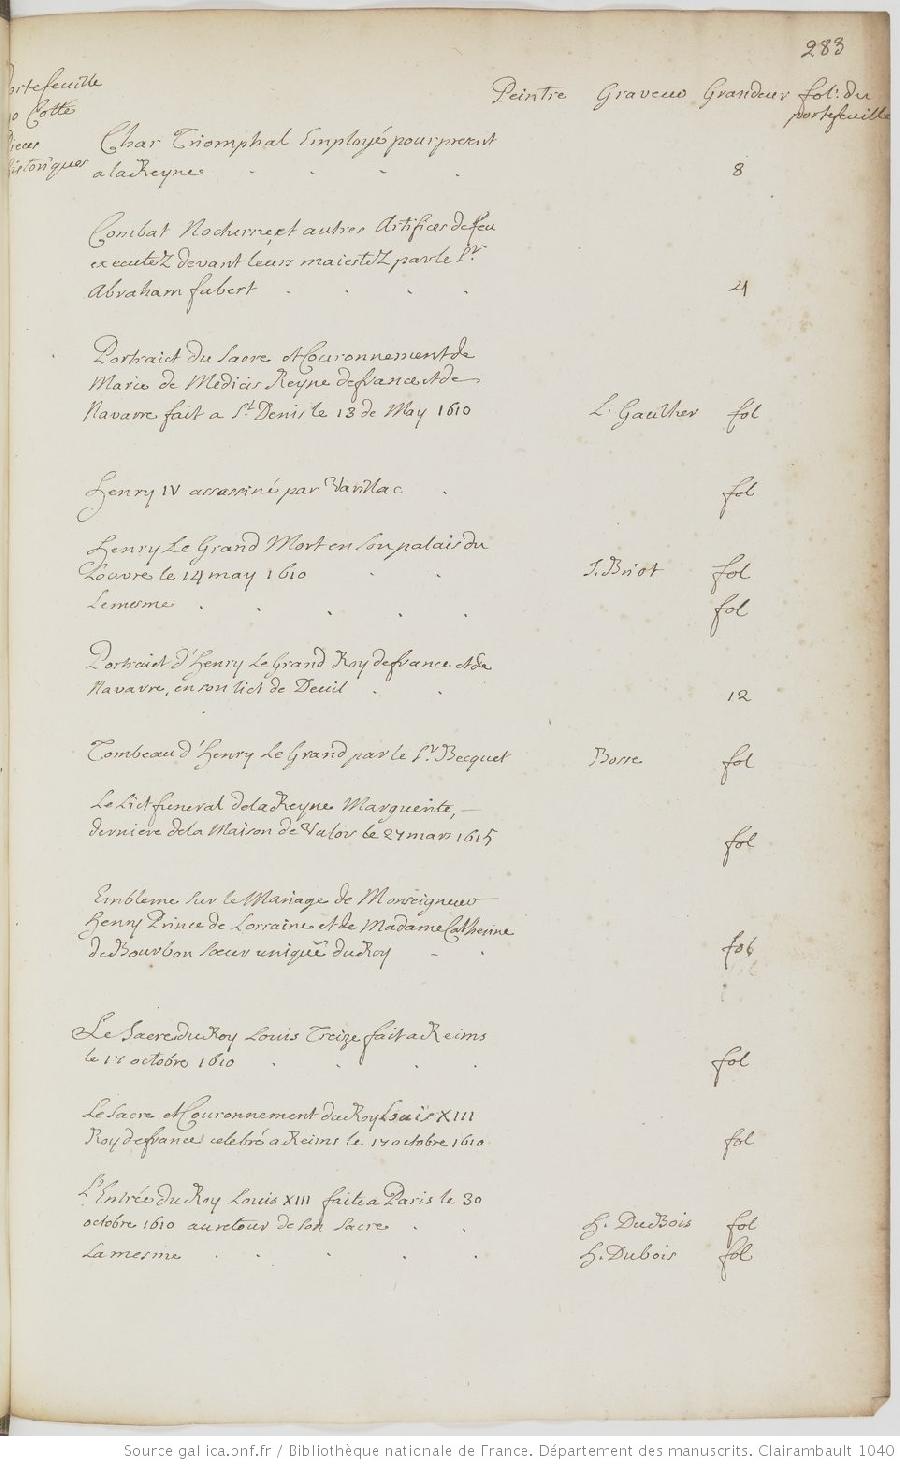 283
Peintre Graveur Grandeur fol. du
portefeuille
ortefeuille
Cotte
ieces
istoriques
Char Triomphal Employé pour present
a la Reyne . . . . 8
Combat Nocturne et autres Artifices de feu
executez devant leurs maiestez par le Sr.
Abraham fubert . . . . 4
Portraict du Sacre et Couronnement de
Marie de Medicis Reyne de france et de
Navarre fait a St. Denis le 13 de May 1610 L. Gaulther fol
Henry IV assassiné par Ravillac . fol
Henry Le Grand Mort en son palais du
Louvre le 14 may 1610 . . I. Briot fol
Le mesme . . . . . fol
Portraict d'Henry Le Grand Roy de france et de
Navarre, en son lict de Deuil . . 12
Tombeau d'Henry Le Grand par le Sr. Becquet Bosse fol
Le Lict funeral de la Reyne Marguerite,
derniere de la Maison de Valois le 27 mars 1615 fol
Embleme sur le Mariage de Monseigneur
Henry Prince de Lorraine et de Madame Catherine
de Bourbon Sœur unique du Roy . . fol
Le Sacre du Roy Louis Treize fait a Reims
le octobre 1610 . . . . fol
Le Sacre et Couronnement du Roy Louis XIII
Roy de france celebré a Reims le 17 octobre 1610 fol
L'Entrée du Roy Louis XIII faite a Paris le 30
octobre 1610 au retour de son Sacre . . H. DuBois fol
La mesme . . . . . H. Dubois fol
Source gallica.bnf.fr / Bibliothèque nationale de France. Département des manuscrits. Clairambault 1040